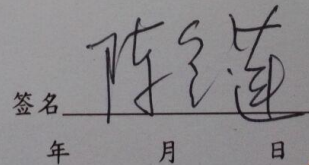 签名 陈 莲
年 月 日